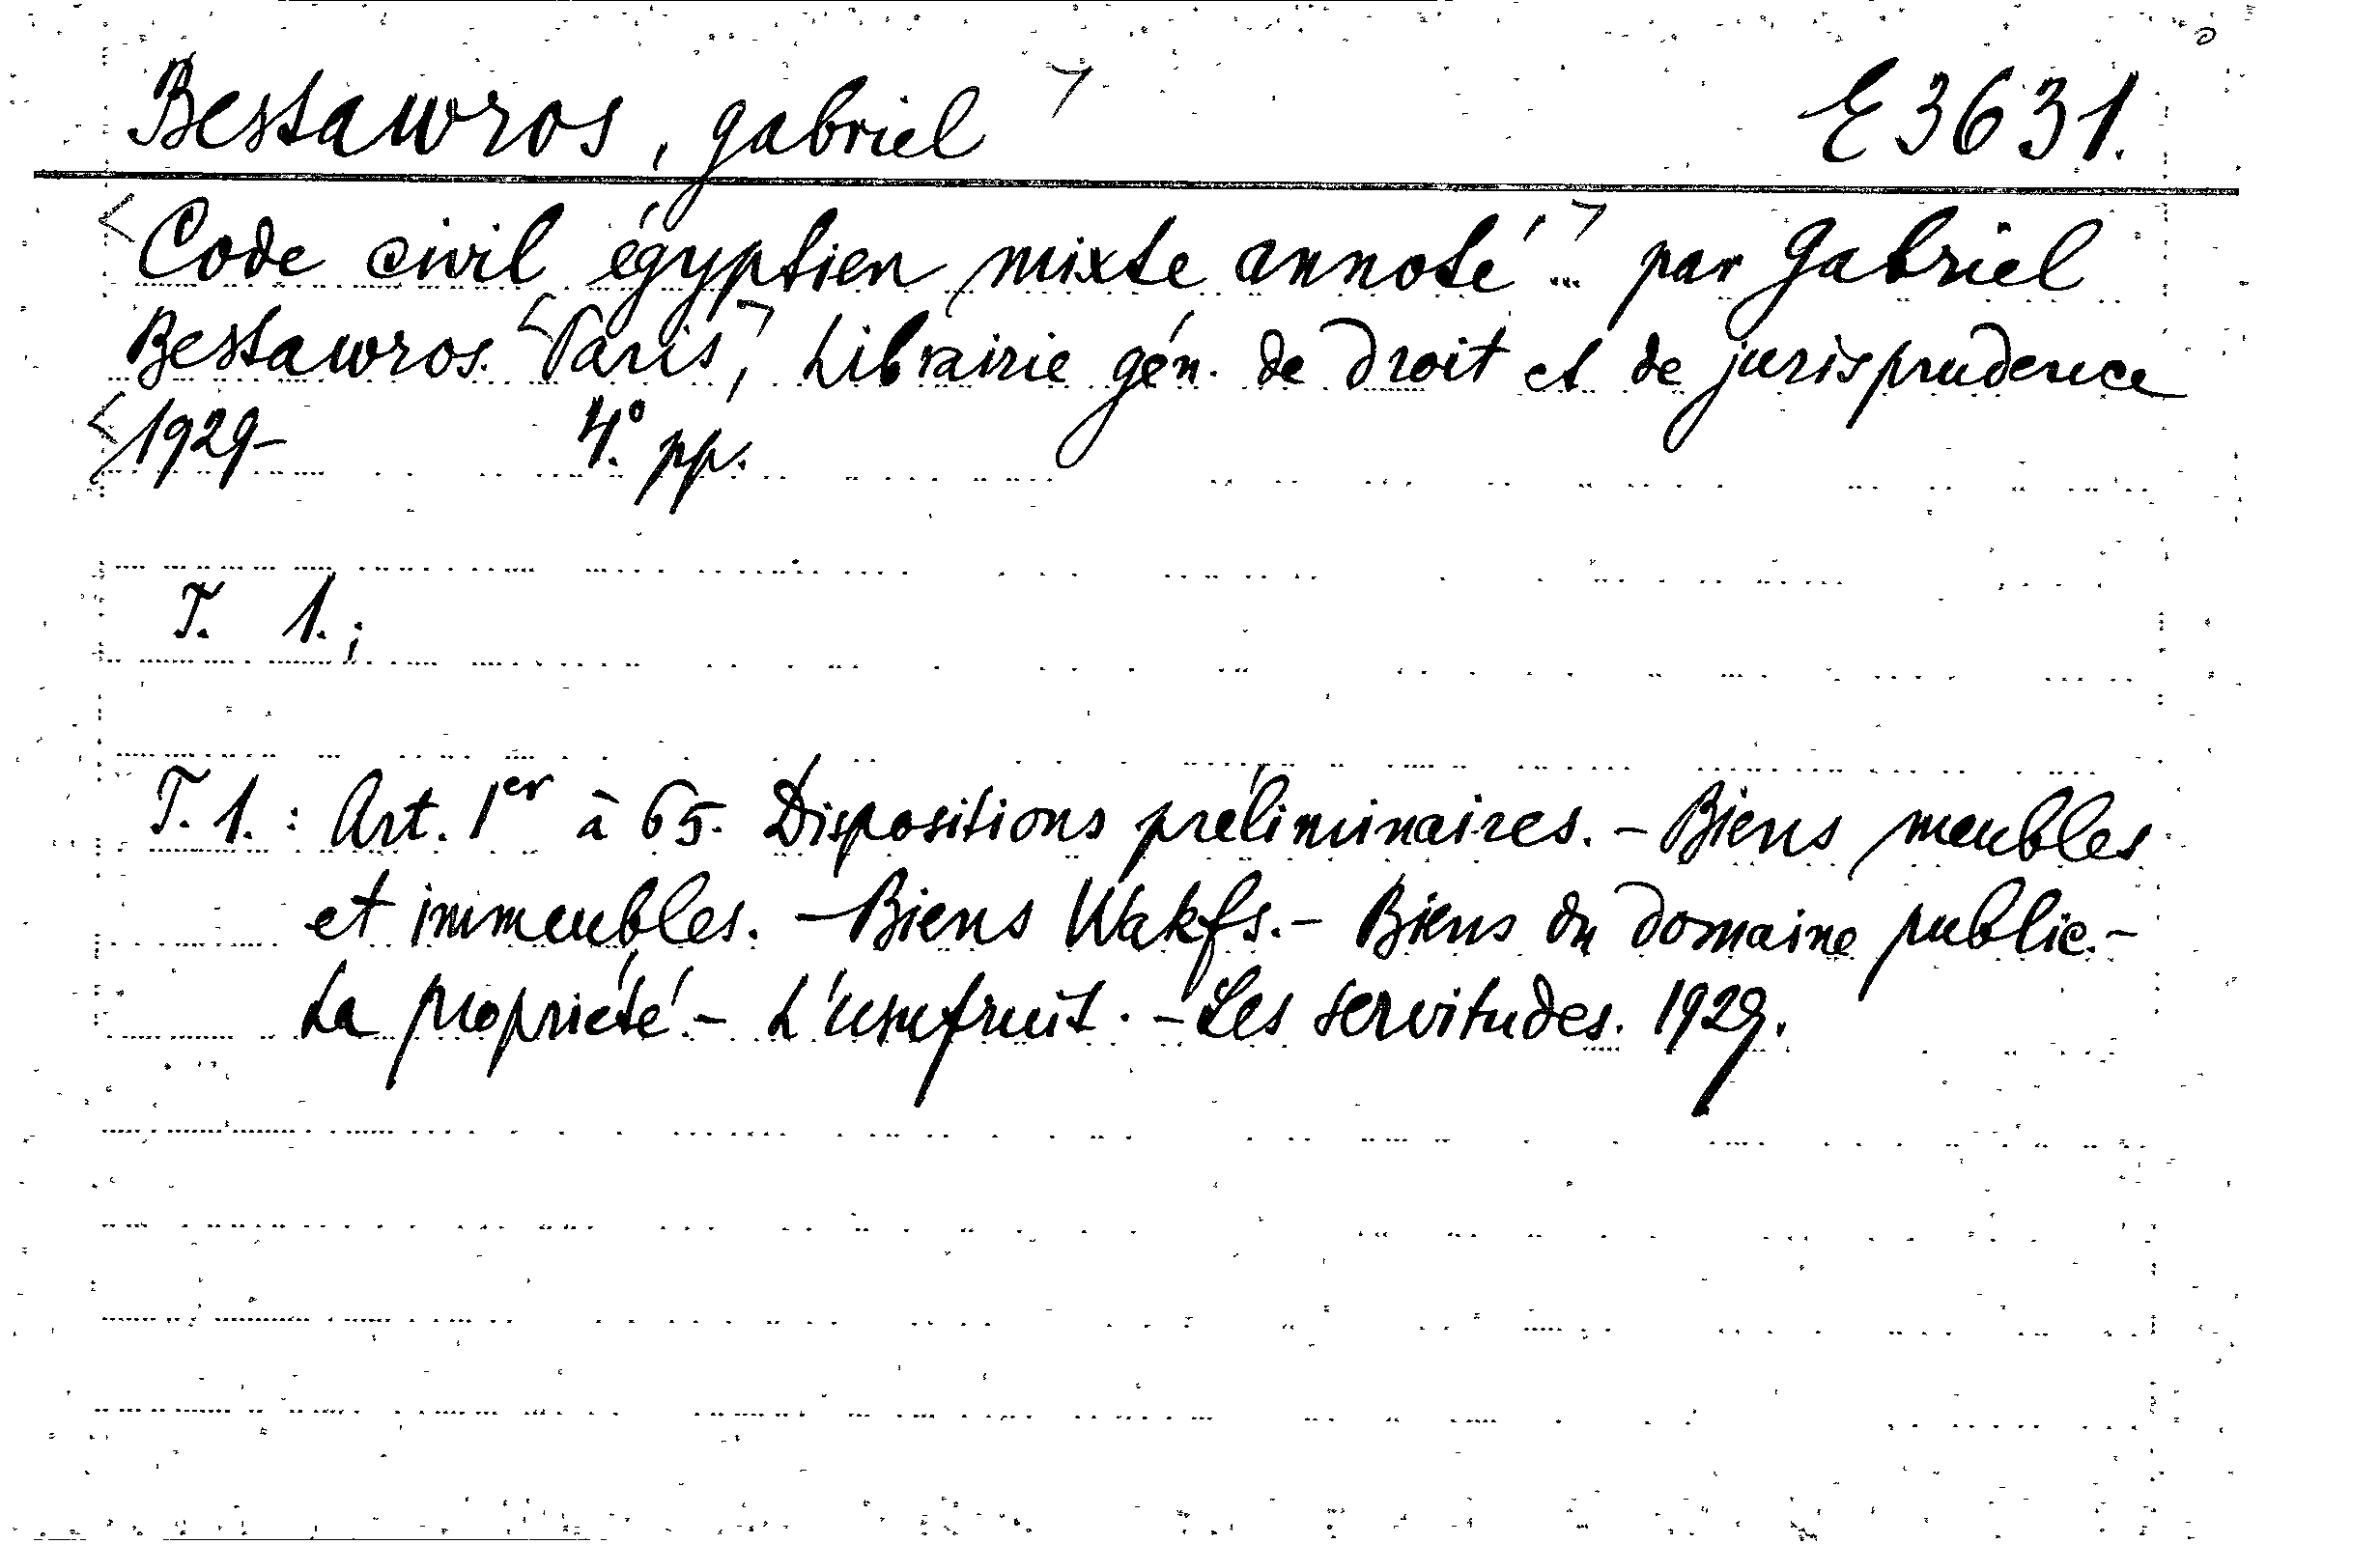 Bestawros, Gabriel E 3631.
Code civil égyptien mixte annoté ... par Gabriel
Bestawros. Paris, Librairie gén. de droit et de jurisprudence
1929- 4° pp.
T. 1.;
T. 1. : Art. 1er à 65. Dispositions préliminaires. - Biens meubles
et immeubles. - Biens Wakfs. - Biens du domaine public. -
La propriété - L'usufruit. - Les servitudes. 1929.